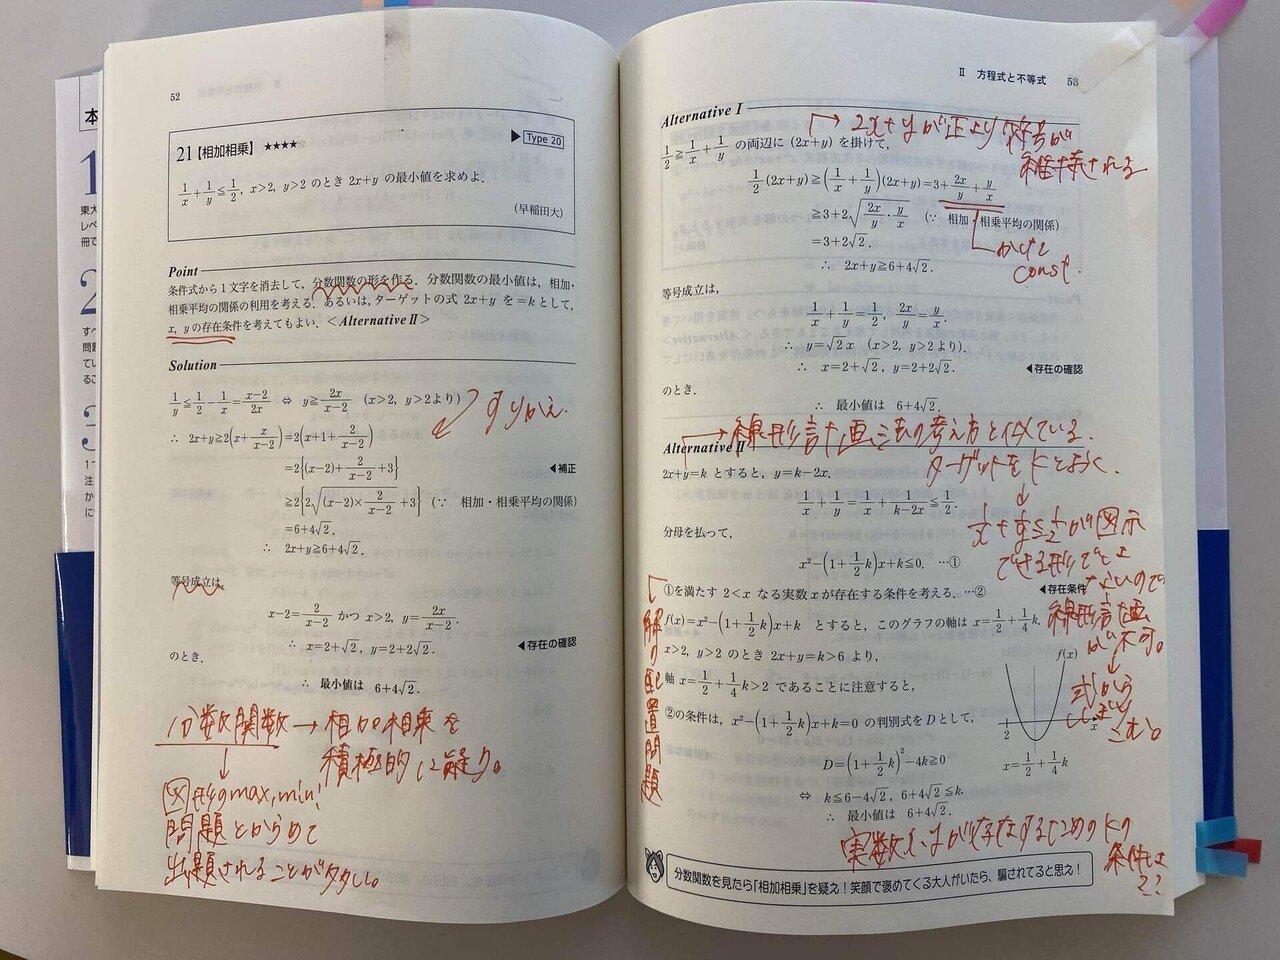 52
21【相加相乗】★★★★
▶Type 20
1/x+1/y≦1/2, x>2, y>2 のとき 2x+y の最小値を求めよ.
(早稲田大)
Point
条件式から1文字を消去して, 分数関数の形を作る. 分数関数の最小値は, 相加・
相乗平均の関係の利用を考える. あるいは, ターゲットの式 2x+y を=k として,
x, y の存在条件を考えてもよい. <Alternative Ⅱ>
Solution
1/y≦1/2-1/x=(x-2)/2x ⇔ y≧2x/(x-2) (x>2, y>2より)
すりかえ.
∴ 2x+y≧2(x+x/(x-2))=2(x+1+2/(x-2))
=2{(x-2)+2/(x-2)+3}
◀補正
≧2{2√((x-2)×2/(x-2))+3} (∵ 相加・相乗平均の関係)
=6+4√2.
∴ 2x+y≧6+4√2.
等号成立は,
x-2=2/(x-2) かつ x>2, y=2x/(x-2).
∴ x=2+√2, y=2+2√2.
◀存在の確認
のとき.
∴ 最小値は 6+4√2.
分数関数→相加相乗を
積極的に疑う。
↓
図形のmax, min
問題とからめて
出題されることが多い。
Ⅱ 方程式と不等式 53
Alternative Ⅰ
→2x+yが正より符号が
維持される
1/2≧1/x+1/y の両辺に (2x+y) を掛けて,
1/2(2x+y)≧(1/x+1/y)(2x+y)=3+2x/y+y/x
≧3+2√(2x/y・y/x) (∵ 相加・相乗平均の関係)
かけて
const.
=3+2√2.
∴ 2x+y≧6+4√2.
等号成立は,
1/x+1/y=1/2, 2x/y=y/x.
∴ y=√2x (x>2, y>2より).
∴ x=2+√2, y=2+2√2.
◀存在の確認
のとき.
∴ 最小値は 6+4√2.
→線形計画法の考え方と似ている.
Alternative Ⅱ
ターゲットをkとおく.
2x+y=k とすると, y=k-2x.
1/x+1/y=1/x+1/(k-2x)≦1/2.
↓
1/x+1/y≦1/2が図示
できる形でと
ないので
線形計画
が不可。
↓
式から
分母を払って,
x²-(1+1/2k)x+k≦0. …①
①を満たす 2<x なる実数 x が存在する条件を考える. …②
◀存在条件
解の配置問題
f(x)=x²-(1+1/2k)x+k とすると, このグラフの軸は x=1/2+1/4k.
x>2, y>2 のとき 2x+y=k>6 より,
軸 x=1/2+1/4k>2 であることに注意すると,
②の条件は, x²-(1+1/2k)x+k=0 の判別式を D として,
f(x)
2
x
x=1/2+1/4k
D=(1+1/2k)²-4k≧0
⇔ k≦6-4√2, 6+4√2≦k.
∴ 最小値は 6+4√2.
実数x, yが存在するためのkの
条件は
??
分数関数を見たら「相加相乗」を疑え！笑顔で褒めてくる大人がいたら、騙されてると思え！
本
1
東大
レベ
冊で
2
すべ
問題
てい
るこ
3
1つ
注
か
に